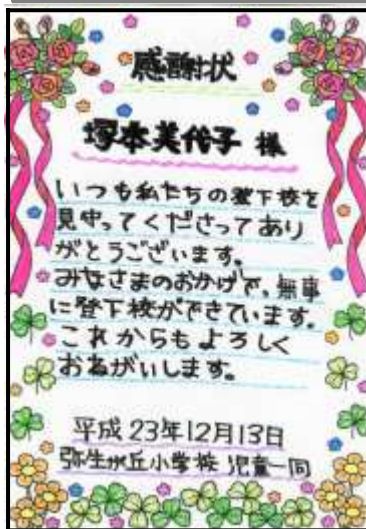 感謝状
塚本美代子 様
いつも私たちの登下校を
見守ってくださってあり
がとうございます。
みなさまのおかげで、無事
に登下校ができています。
これからもよろしく
おねがいします。
平成23年12月13日
弥生が丘小学校 児童一同